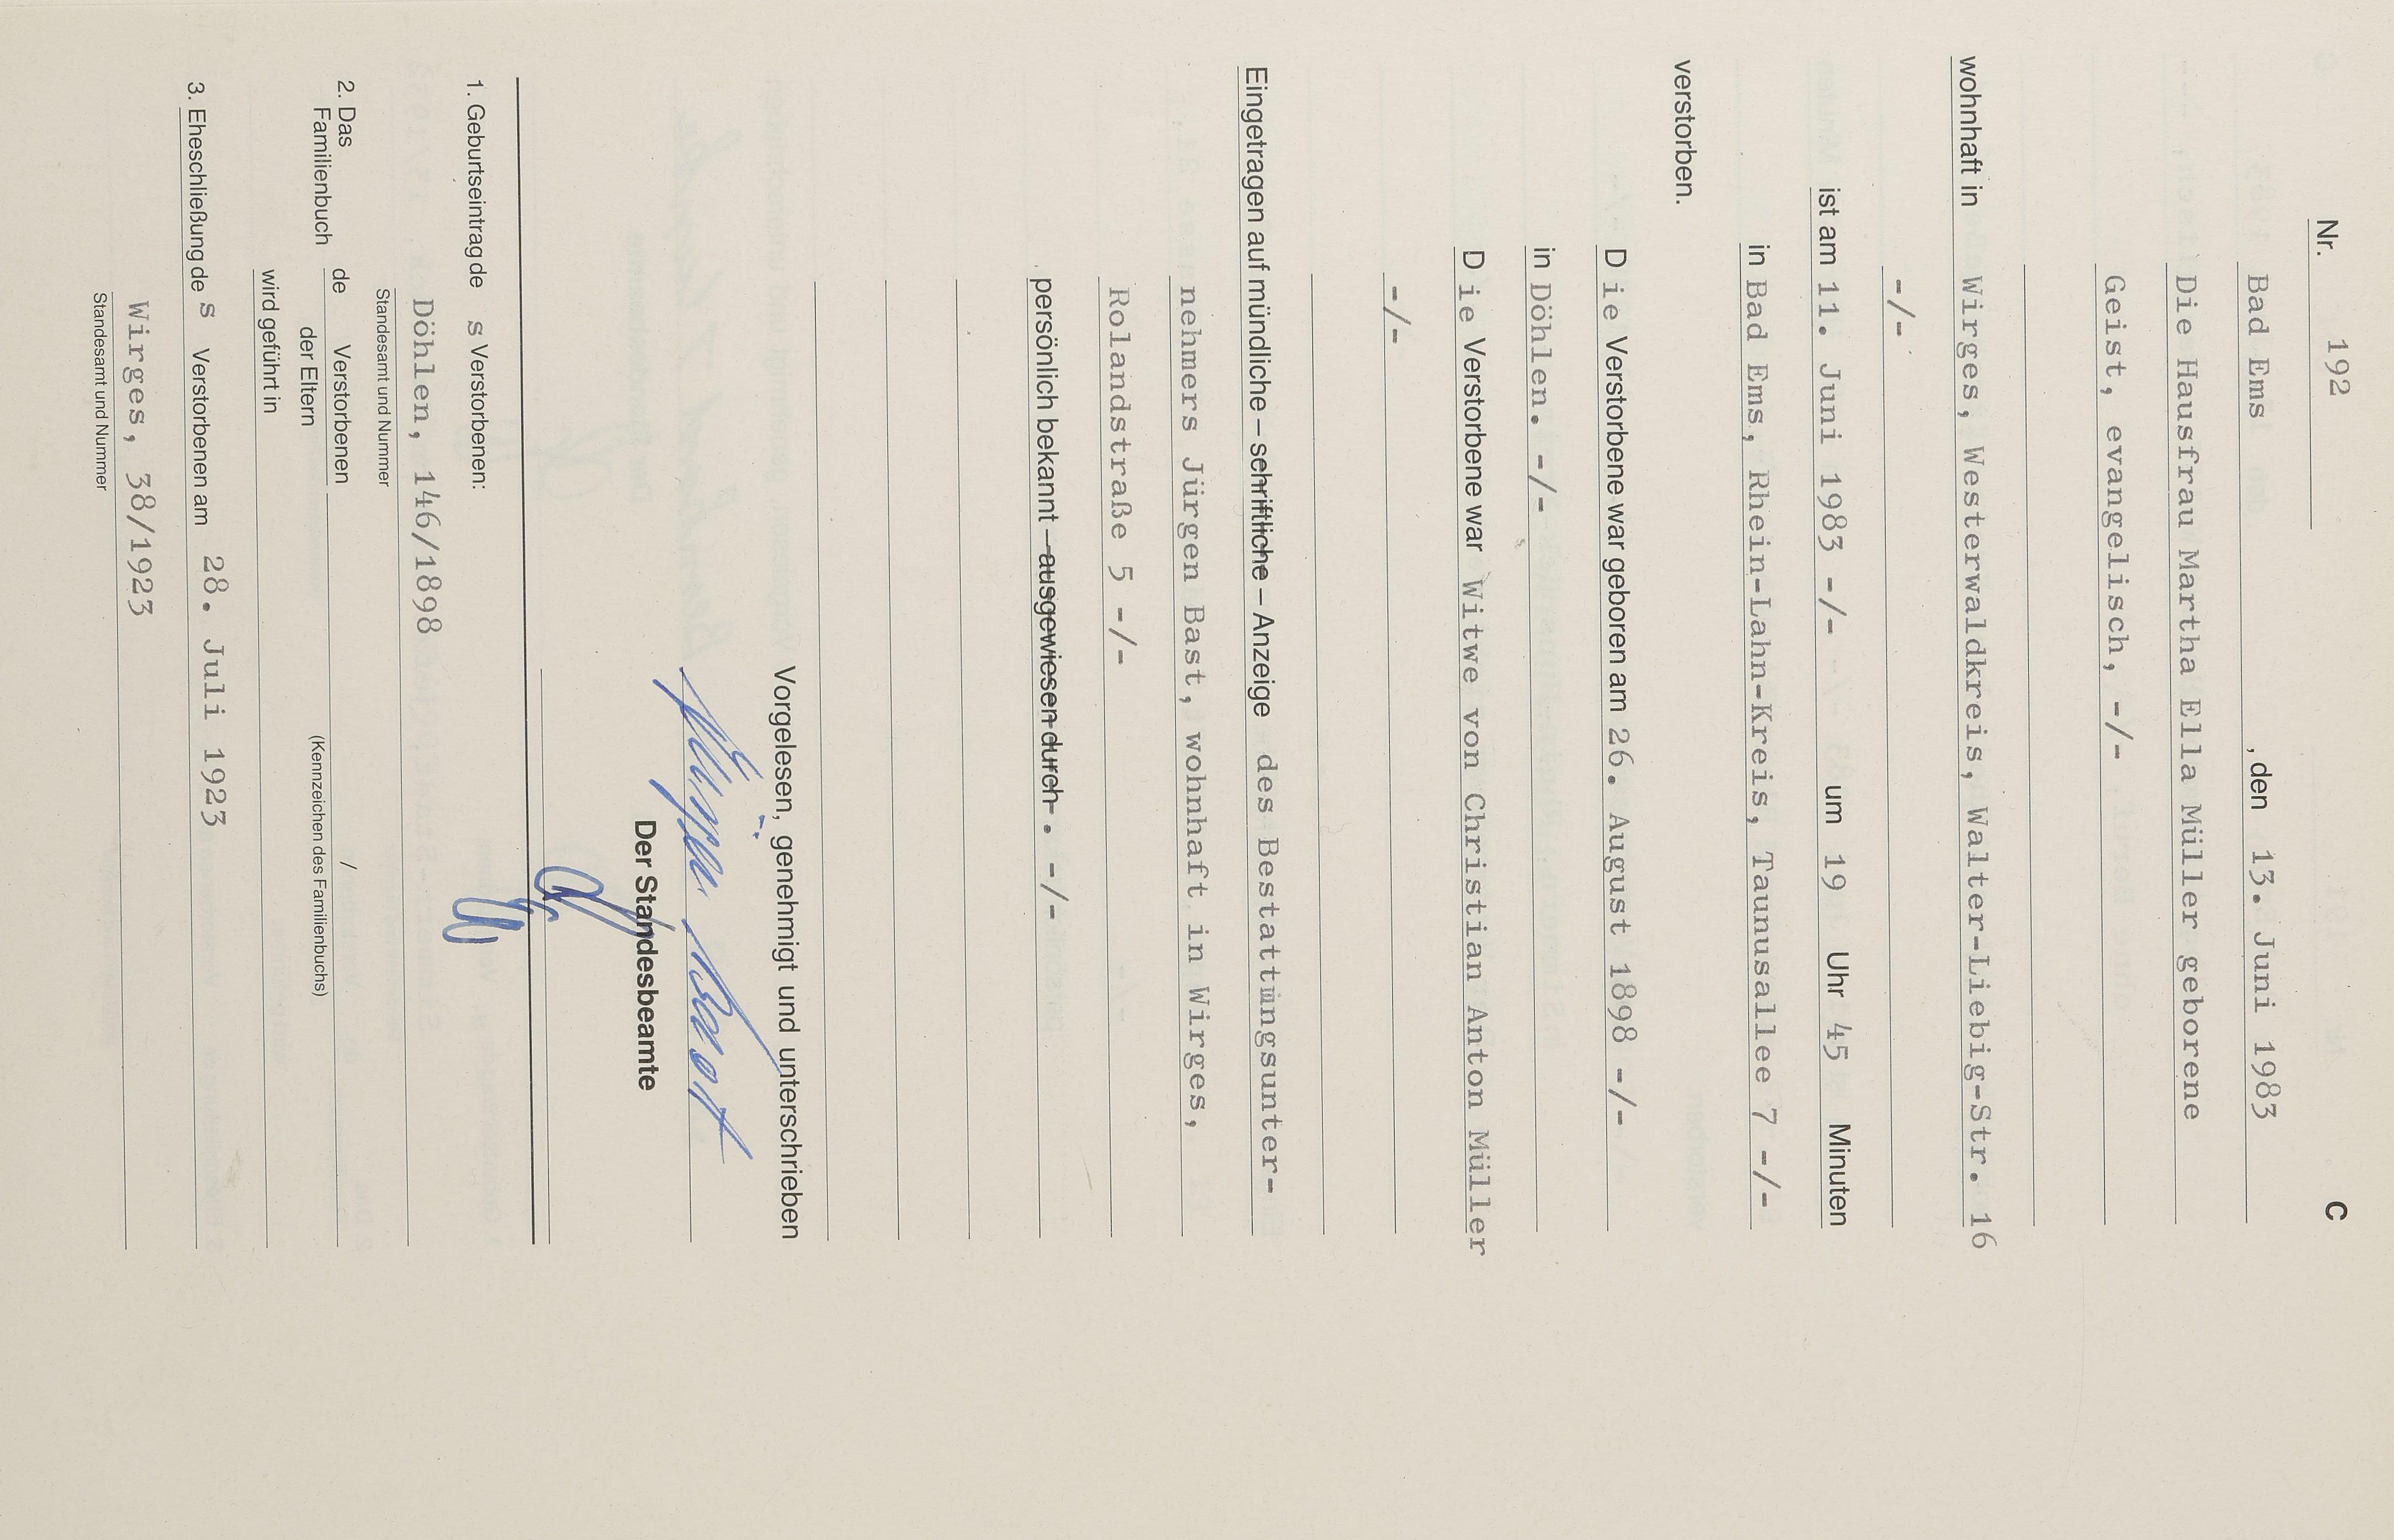 C
Nr. 192
Bad Ems , den 13. Juni 1983
Die Hausfrau Martha Ella Müller geborene
Geist, evangelisch, -/-
wohnhaft in Wirges, Westerwaldkreis, Walter-Liebig-Str. 16
-/-
ist am 11. Juni 1983 -/- um 19 Uhr 45 Minuten
in Bad Ems, Rhein-Lahn-Kreis, Taunusallee 7 -/-
verstorben.
D ie Verstorbene war geboren am 26. August 1898 -/-
in Döhlen. -/-
D ie Verstorbene war Witwe von Christian Anton Müller
-/-
Eingetragen auf mündliche – schriftliche – Anzeige des Bestattungsunter-
nehmers Jürgen Bast, wohnhaft in Wirges,
Rolandstraße 5 -/-
persönlich bekannt – ausgewiesen durch . -/-
Vorgelesen, genehmigt und unterschrieben
Jürgen Bast
Der Standesbeamte
1. Geburtseintrag de s Verstorbenen:
Döhlen, 146/1898
Standesamt und Nummer
2. Das Familienbuch de Verstorbenen /
der Eltern (Kennzeichen des Familienbuchs)
wird geführt in
3. Eheschließung de s Verstorbenen am 28. Juli 1923
Wirges, 38/1923
Standesamt und Nummer